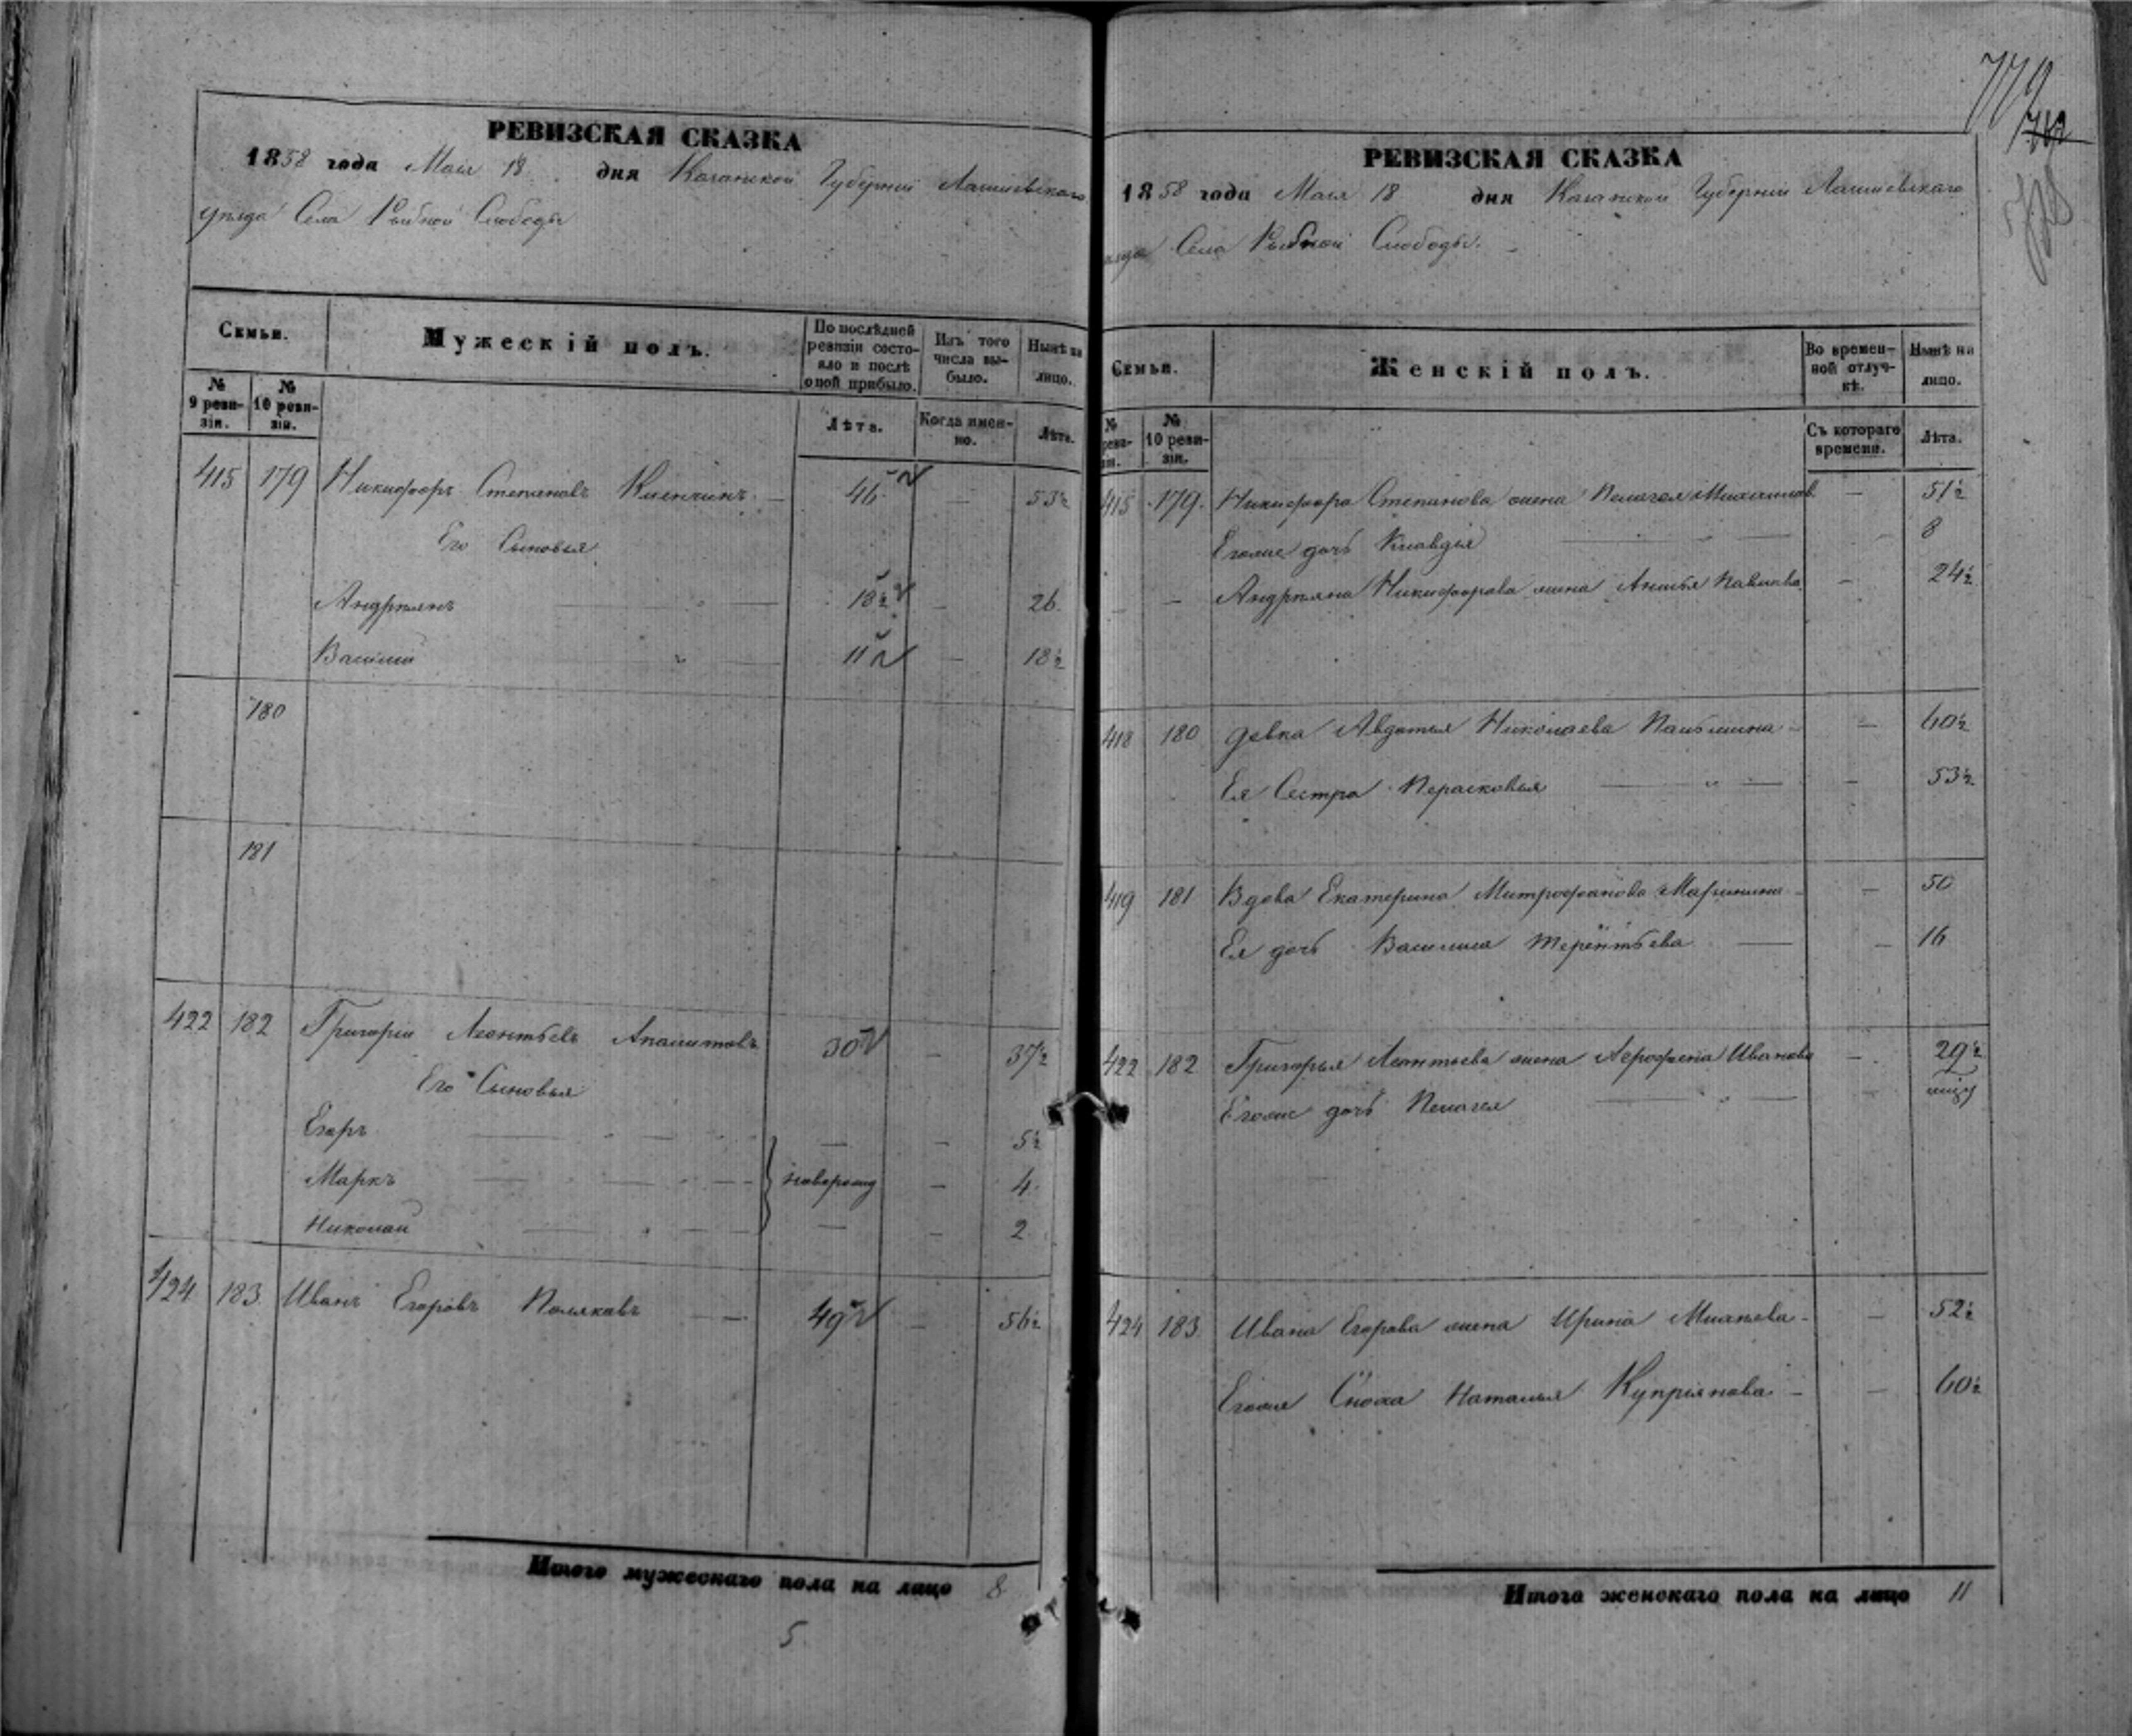 779
РЕВИЗСКАЯ СКАЗКА
1858 года Мая 18 дня Казанской Губерніи Лаишевскаго
уѣзда Села Рыбной Слободы
Семьи.
Мужескій полъ.
По послѣдней ревизіи состояло и послѣ оной прибыло.
Изъ того числа выбыло.
Нынѣ на лицо.
№ 9 ревизіи.
№ 10 ревизіи.
Лѣта.
Когда именно.
Лѣта.
415 179 Никифоръ Степановъ — 46 — 53½
Его Сыновья
Андріянъ „ — 18½ — 26
Василій „ — 11 — 18½
180
181
422 182 Григорій Леонтьевъ 30 — 37½
Его Сыновья
Егоръ — „ — — — 5½
Маркъ — „ — новорожд — 4
Николай — „ — — — 2
424 183 Иванъ Егоровъ Поляковъ — 49 — 56½
Итого мужескаго пола на лицо 8
5
РЕВИЗСКАЯ СКАЗКА
1858 года Мая 18 дня Казанской Губерніи Лаишевскаго
уѣзда Села Рыбной Слободы.
Семьи.
Женскій полъ.
Во временной отлучкѣ.
Нынѣ на лицо.
№ ревизіи.
№ 10 ревизіи.
Съ котораго времени.
Лѣта.
415 179 Никифора Степанова жена Пелагея — 51½
Егоже дочь Клавдья — „ — - 8
— — Андріяна Никифорова жена Анисья Павлова — 24½
418 180 девка Авдотья Николаева — 60½
Ея Сестра Перасковья — „ — — 53½
419 181 Вдова Екатерина Митрофанова — 50
Ея дочь Василиса Терентьева — — 16
422 182 Григорья Леонтьева жена Иванова — 29½
Егоже дочь Пелагея — „ — —
424 183 Ивана Егорова жена Ирина — 52½
Егоже Сноха Наталья Купріянова — — 60½
Итого женскаго пола на лицо 11